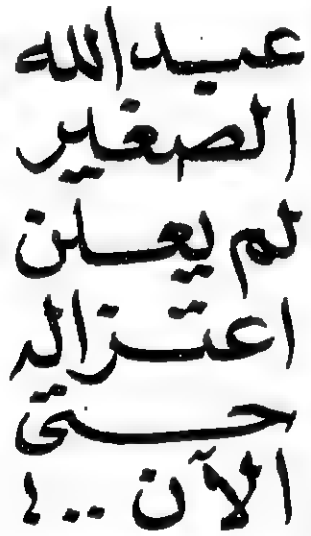 عبدالله
الصغير
لم يعلن
اعتزاله
حتى
الآن ..!